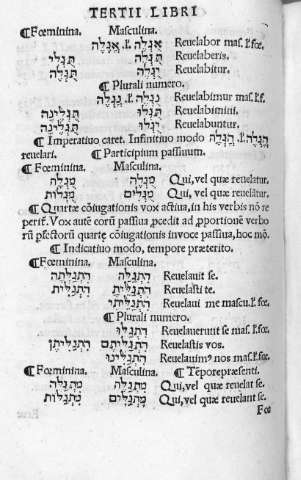 TERTII LIBRI
¶Fœminina. Masculina.
אֲגֻלֶּה ł אֲגֻלֶּה Reuelabor mas. ł fœ.
תְּגֻלִּי תְּגֻלֶּה Reuelaberis.
תְּגֻלֶּה יְגֻלֶּה Reuelabitur.
¶Plurali numero.
נְגֻלֶּה ł נְגֻלֶּה Reuelabimur mas. ł f.
תְּגֻלֶּינָה תְּגֻלּוּ Reuelabimini.
תְּגֻלֶּינָה יְגֻלּוּ Reuelabuntur.
¶Imperatiuo caret. Infinitiuo modo
reuelari. ¶Participium passiuum.
¶Fœminina. Masculina.
מְגֻלָּה מְגֻלֶּה Qui, vel quæ reuelatur.
מְגֻלּוֹת מְגֻלִּים Qui, vel quæ reuelatur.
¶Quartæ cōiugationis vox actiua, in his verbis nō re
perit. Vox autē eorū passiua, pcedit ad pportionē verbo
rū pfectorū quartę cōiugationis in voce passiua, hoc mō.
¶Indicatiuo modo, tempore præterito.
¶Fœminina. Masculina.
הִתְגַּלְּתָה הִתְגַּלָּה Reuelauit se.
הִתְגַּלִּית הִתְגַּלִּיתָ Reuelasti te.
הִתְגַּלִּיתִי Reuelaui me mascu. ł fœ.
¶Plurali numero.
הִתְגַּלּוּ Reuelauerunt se mas. ł fœ.
הִתְגַּלִּיתֶן הִתְגַּלִּיתֶם Reuelastis vos.
הִתְגַּלִּינוּ Reuelauimꝰ nos mas. ł fœ.
¶Fœminina. Masculina. ¶Tēpore præsenti.
מִתְגַּלָּה מִתְגַּלֶּה Qui, vel quæ reuelat se.
מִתְגַּלּוֹת מִתְגַּלִּים Qui, vel quæ reuelant se.
Fœ